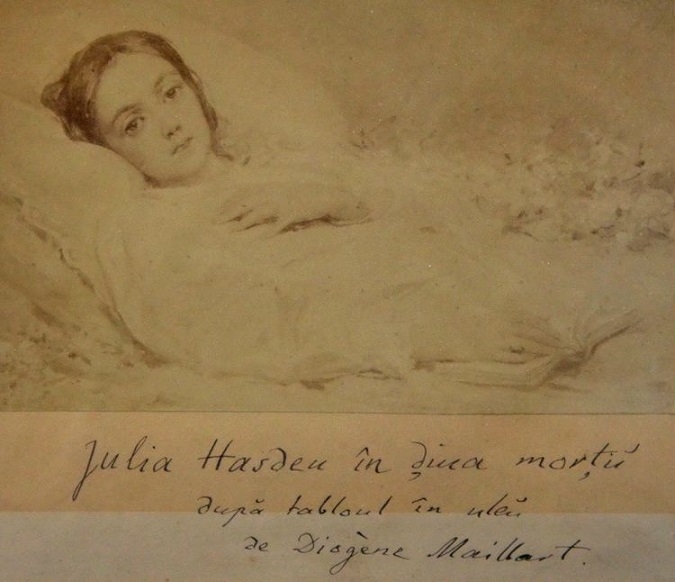 Julia Hasdeu în ḑiua morțiĭ
după tabloul în uleŭ
de Diogène Maillart.